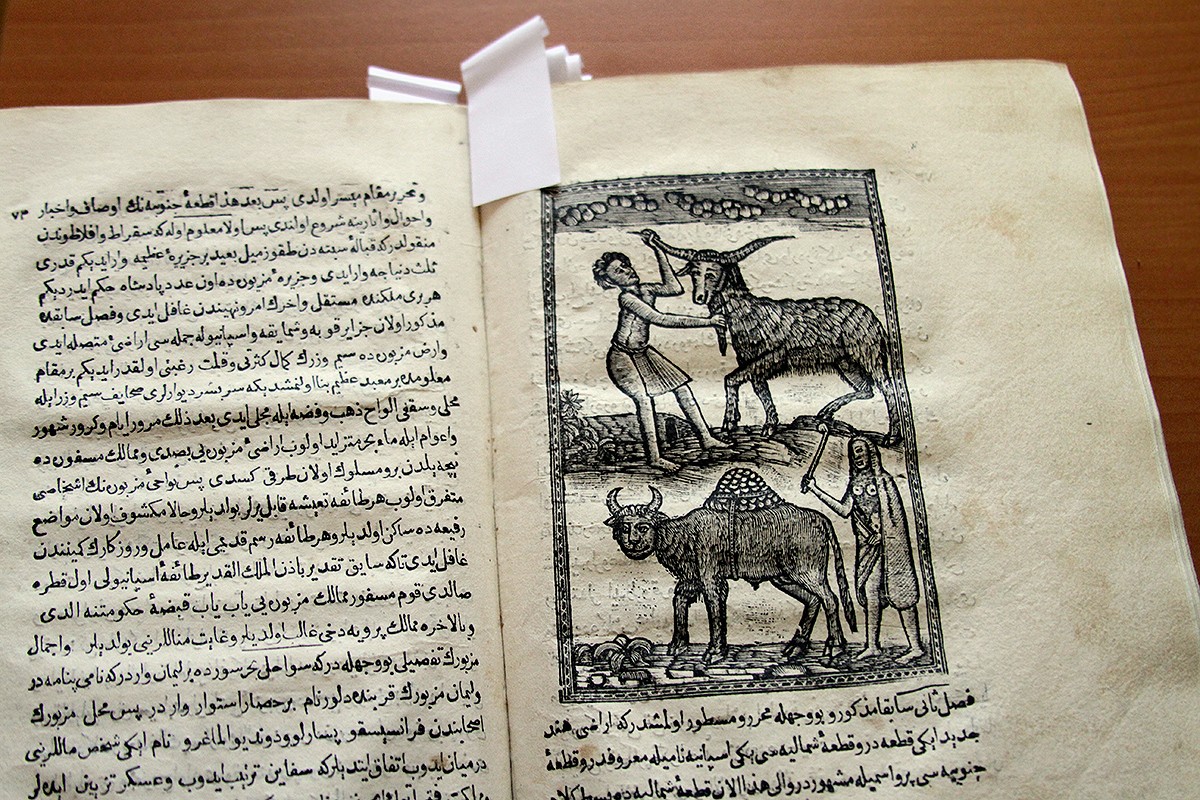 وتحریر مقام میسر اولدی پس بعد هذا قطعهٔ جنوبیه نك اوصاف واخبار
٧٣
واحوال وآثارینه شروع اولندی پس اولا معلوم اوله که سقراط وافلاطوندن
منقولدر که قبالهٔ سبته دن طقوز میل بعید بر جزیرهٔ عظیمه وار ایدیکم قدری
ثلث دنیاجه وار ایدی وجزیرهٔ مزبورده اون عدد پادشاه حکم ایدردیکم
هر بری ملکنده مستقل واخرك امر ونهیندن غافل ایدی وفصل سابقده
مذکور اولان جزایر قوبه وشمایقه واسپانیوله جمله سی اراضیٔ متصله ایدی
وارض مزبورده سیم وزرك کمال کثرتی وقلت رغبتی اولقدر ایدیکم بر مقام
معلومده بر معبد عظیم بنا اولنمشدیکه سربسر دیوارلری صحایف سیم وزر ایله
محلی وسقفی الواح ذهب وفضه ایله مجلی ایدی بعد ذلك مرور ایام وکرور شهور
واعوام ایله ماء بحر متزاید اولوب اراضیٔ مزبوره یی بصدی وممالك مسفوره ده
نیچه بلدن برو مسلوك اولان طرقی کسدی پس نواحیٔ مزبوره نك اشخاصی
متفرق اولوب هر طائفه تعیشه قابل یرلر بولدیلر وحالا مکشوف اولان مواضع
رفیعه ده ساکن اولدیلر وهر طائفه رسم قدیمی ایله عامل وروزکارك کیتندن
غافل ایدی تاکه سابق تقدیر باذن الملك القدیر طائفهٔ اسپانیولی اول قطره
صالدی قوم مسفور ممالك مزبوره یی یاب یاب قبضهٔ حکومتنه الدی
وبالاخره ممالك پرویه دخی غالب اولدیلر وغایت مناللرینی بولدیلر واجمال
مزبورك تفصیلی بو وجهله در که سواحل بحر سورده بر لیمان واردر که نامی پنامه در
ولیمان مزبورك قربنده دلور نام بر حصار استوار واردر پس محل مزبورك
اصحابندن فرانسیسقو پیسارو ودوندیو الماغرو نام ایکی شخص ماللرینی
درمیان ایدوب اتفاق ایتدیلر که سفاین ترتیب ایدوب وعسکر تزیین ایدەلر
فصل ثانی سابقا مذکور و بو وجهله محرر و مسطور اولمشدر که اراضیٔ هند
جدید ایکی قطعه در وقطعهٔ شمالیه سی یکی اسپانیه نامیله معروفدر وقطعهٔ
جنوبیه سی پرو اسمیله مشهوردر والی هذا الان قطعهٔ شمالیه ده بسط کلام